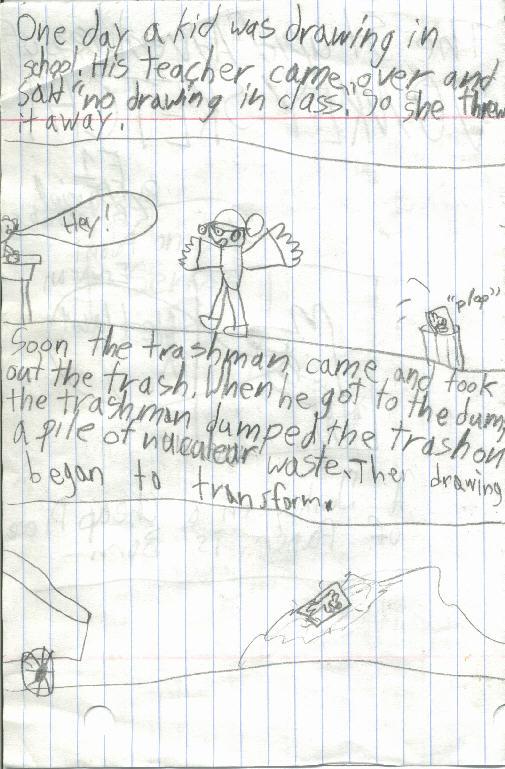 One day a kid was drawing in
school. His teacher came over and
said "no drawing in class." So she threw
it away.
Hey!
"plop"
Soon the trashman came and took
out the trash. When he got to the dum
the trashman dumped the trash on
a pile of nucalear waste. The drawing
began to transform.